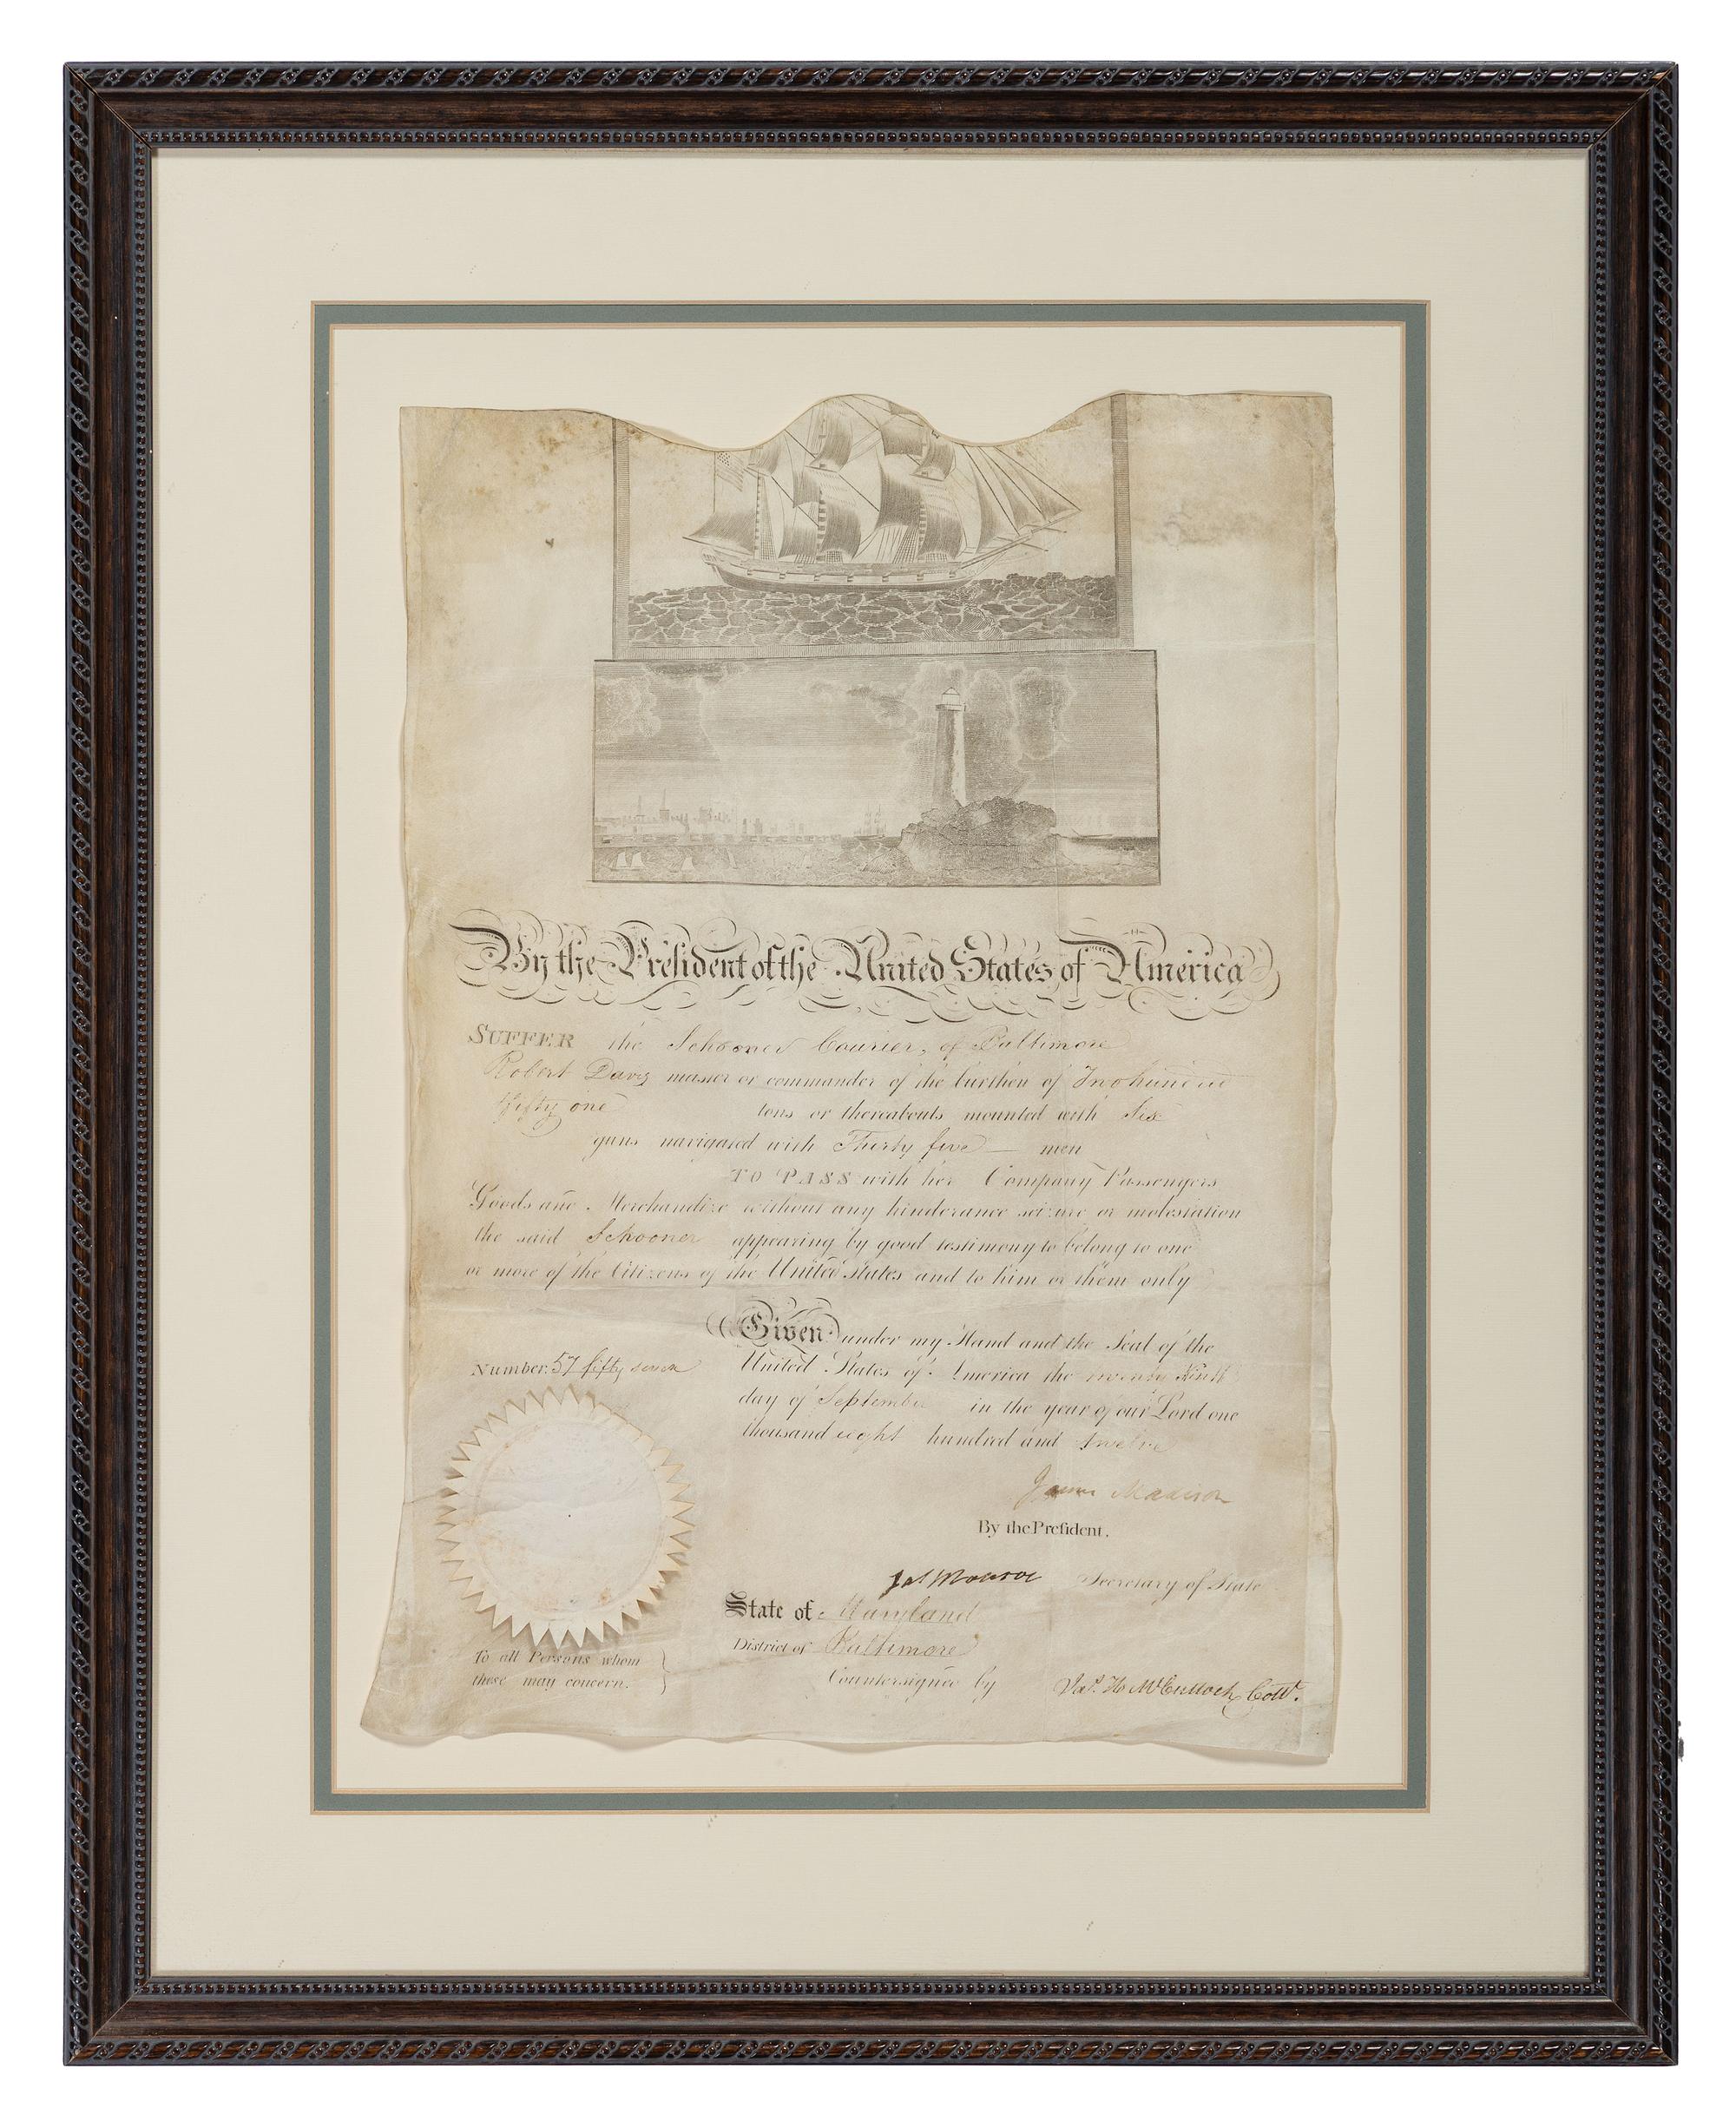 By the President of the United States of America
SUFFER the Schooner Courier, of Baltimore
Robert Davis master or commander of the burthen of Two hundred
fifty one tons or thereabouts mounted with Six
guns navigated with Thirty five men
TO PASS with her Company Passengers
Goods and Merchandize without any hinderance seizure or molestation
the said Schooner appearing by good testimony to belong to one
or more of the Citizens of the United States and to him or them only
Given under my Hand and the Seal of the
Number: 57 fifty seven United States of America the twenty Ninth
day of September in the year of our Lord one
thousand eight hundred and twelve
James Madison
By the President.
Jas Monroe Secretary of State
State of Maryland
District of Baltimore
To all Persons whom
these may concern.
Countersigned by Jas. H. McCulloch Collr.